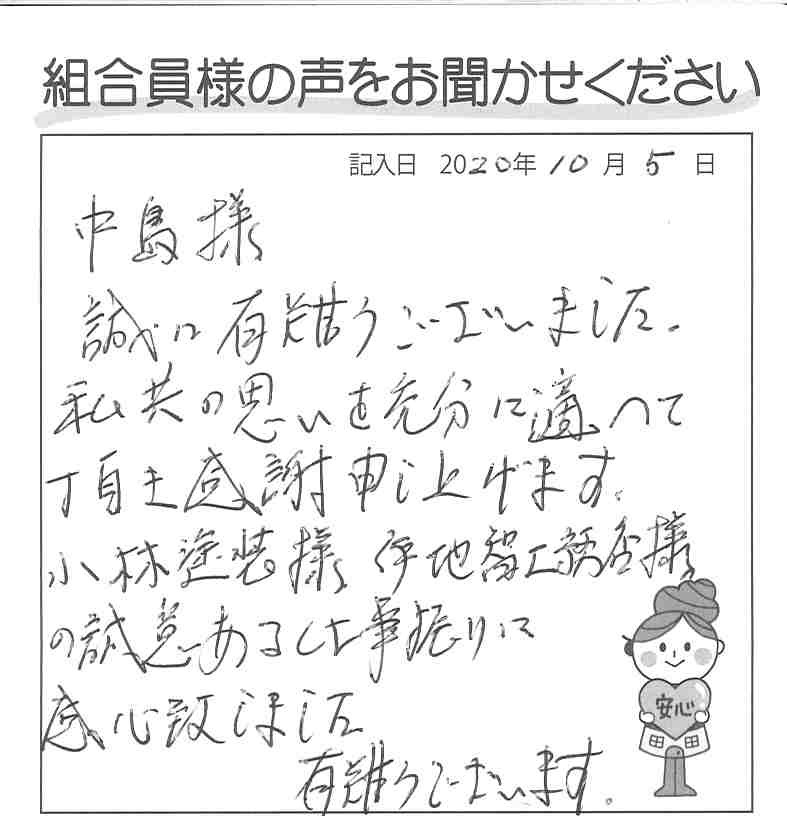 組合員様の声をお聞かせください
記入日 2020年10月5日
中島様
誠に有難うございました。
私共の思いを充分に適へて
頂き感謝申し上げます。
小林塗装様 伊地智工務店様
の誠意ある仕事振りに
感心致しました
有難うございます。
安心